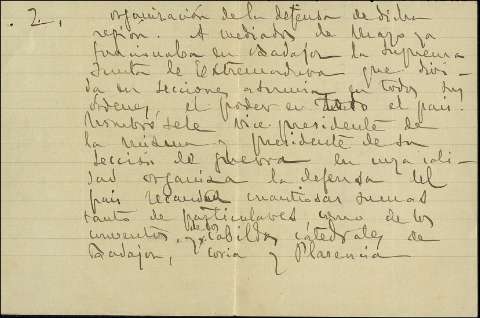 . 2,
organización de la defensa de dicha
región. A mediados de Mayo ya
funcionaba en Badajoz la suprema
Junta de Extremadura que divi-
da en secciones asumia en todos sus
órdenes, el poder en todo el país.
Nombrósele vice presidente de
la misma y presidente de su
sección de guerra en cuya cali-
dad organiza la defensa del
país recauda cuantiosas sumas
tanto de particulares como de los
conventos, y de los cabildos catedrales de
Badajoz, Coria y Plasencia